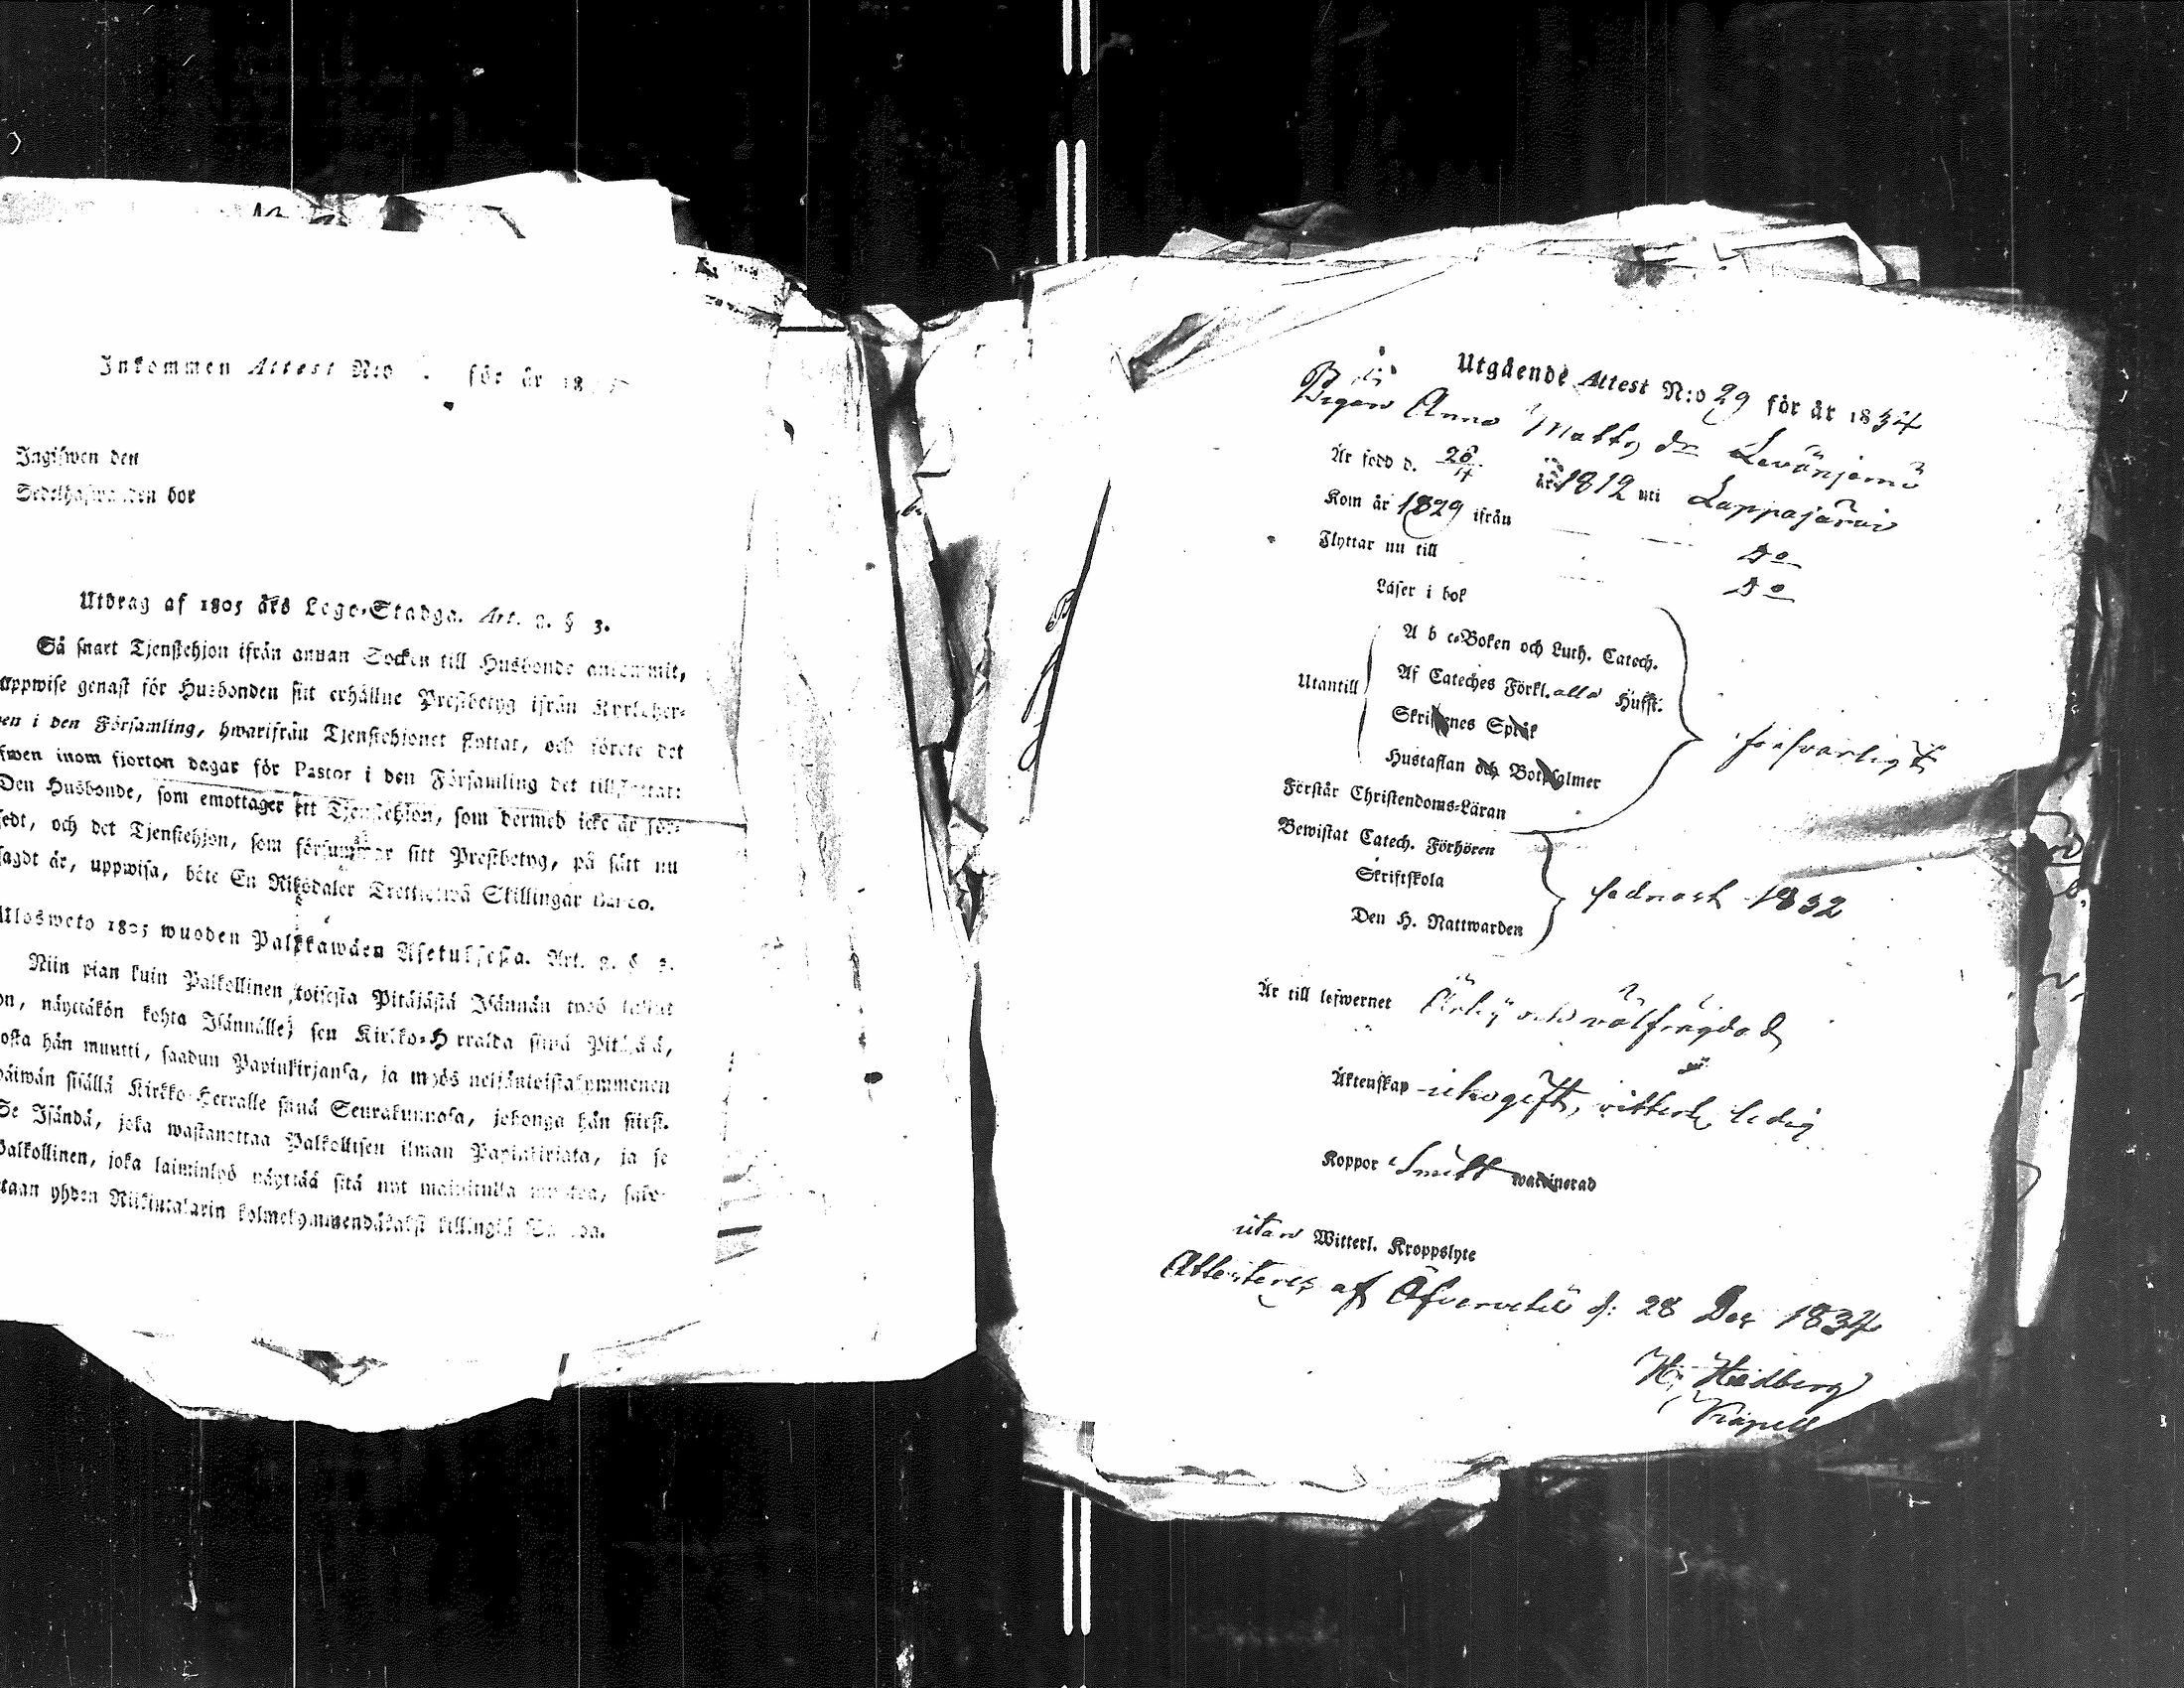 Inkommen Attest N:o för år 18
Ingifwen den
Sedelhafwanden bor
Utdrag af 1805 års Lego-Stadga. Art. 2. § 3.
Så snart Tjenstehjon ifrån annan Socken till Husbonde ankommit,
uppwise genast för Husbonden sitt erhållne Prestbetyg ifrån Kyrkoher-
den i den Församling, hwarifrån Tjenstehjonet flyttat, och förete det
inom fjorton dagar för Pastor i den Församling det tillflyttat:
Den Husbonde, som emottager ett Tjenstehjon, som dermed icke är för-
sedt, och det Tjenstehjon, som försummar sitt Prestbetyg, på sätt nu
sagdt är, uppwisa, böte En Riksdaler Trettiotwå Skillingar Banco.
Ulosweto 1805 wuoden Palkkawäen Asetuksesta. Art. 2. § 3.
Niin pian kuin Palkollinen toisesta Pitäjästä Isännän tygö tullut
on, näyttäkön kohta Isännälle, sen Kirkko-Herralda siinä Pitäjäsä,
josta hän muutti, saadun Papinkirjansa, ja myös neljäntoistakymmenen
päiwän sisällä Kirkko-Herralle siinä Seurakunnasa, johonga hän siirsi.
Se Isändä, joka wastanottaa Palkollisen ilman Papinkirjata, ja se
Palkollinen, joka laiminlyö näyttää sitä nyt mainitulla
yhden Riikintalarin kolmekymmendäkaksi killingiä
Utgående Attest N:o 29 för år 1834
Pigan Anna Matts dr Levänjemi
Är född d. 26/4 år 1812 uti Lappajärvi
Kom år 1829 ifrån Do
Flyttar nu till Do
Läser i bok
Utantill
A b c-Boken och Luth. Catech.
Af Cateches Förkl. alla Husst.
Skriftenes Språk
Hustaflan och Botpsalmer
försvarligt
Förstår Christendoms-Läran
Bewistat Catech. Förhören
Skriftskola
Den H. Nattwarden
sednast 1832
Är till lefwernet Ärlig och välfrägdad
Äktenskap ehogift, vitterl. ledig
Koppor Smitt waccinerad
utan Witterl. Kroppslyte
Attesteras af Öfvervetil d: 28 Dec 1834
H: Hedberg
Capell